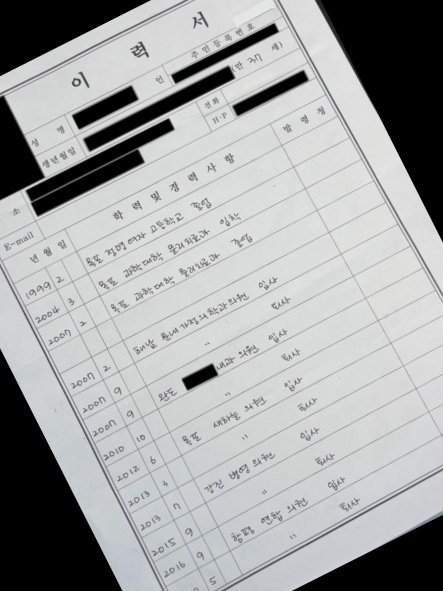 이 력 서
주민등록번호
성 명 인
생년월일 (만 37 세)
전화
H·P
소
E-mail
년 월 일 학 력 및 경 력 사 항 발 령 청
1999 2 목포 정명여자 고등학교 졸업
2004 3 목포 과학대학 물리치료과 입학
2007 2 목포 과학대학 물리치료과 졸업
2007 2 해남 가정의학과의원 입사
2007 9 〃 퇴사
2007 9 완도 내과 의원 입사
2010 10 〃 퇴사
2012 6 목포 새하늘 의원 입사
2013 3 〃 퇴사
2013 7 강진 병영 의원 입사
2015 9 〃 퇴사
2016 9 함평 연합 의원 입사
5 〃 퇴사